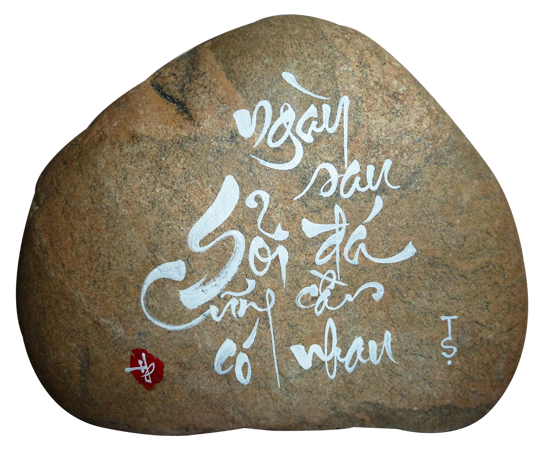 ngày
sau
Sỏi đá
Cũng cần
có nhau
T
Ṣ